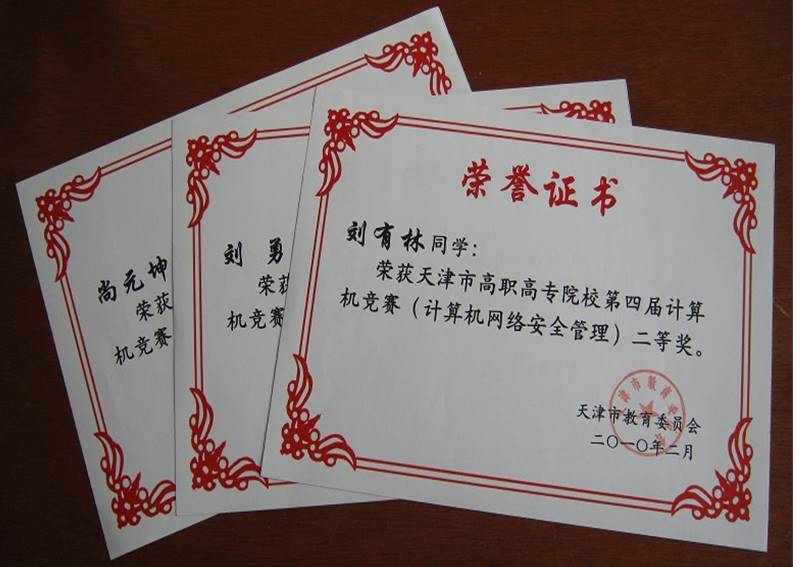 尚元坤
荣获
机竞赛
刘 勇
荣获
机竞赛
荣誉证书
刘有林同学:
荣获天津市高职高专院校第四届计算
机竞赛(计算机网络安全管理)二等奖。
天津市教育委员会
二〇一〇年二月